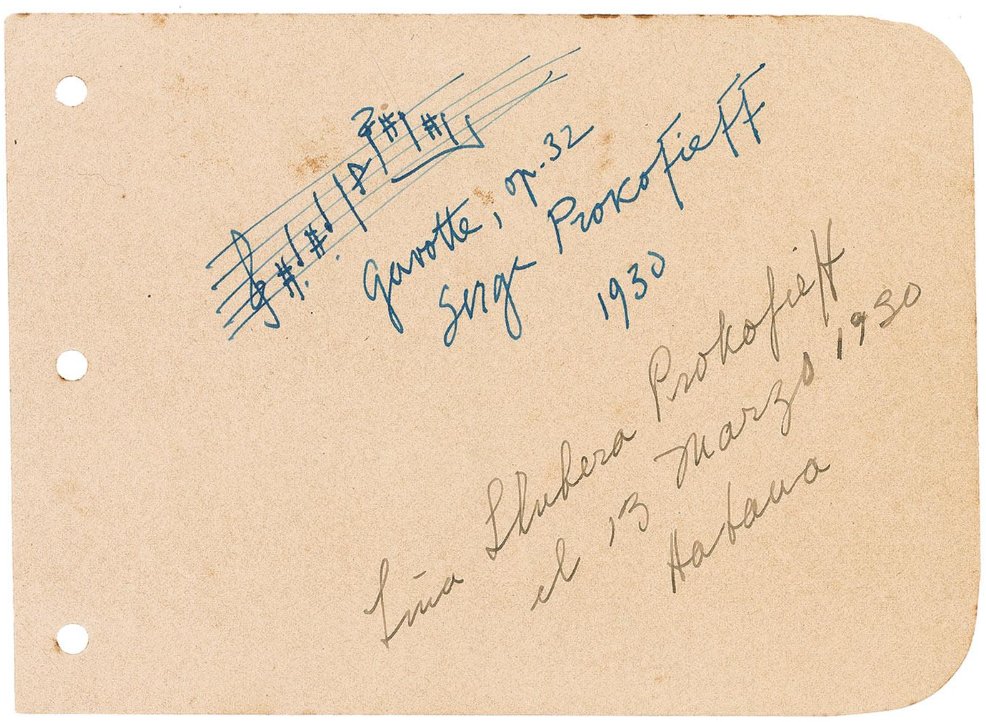 Gavotte, op. 32
Serge Prokofieff
1930
Lina Llubera Prokofieff
el 13 Marzo 1930
Habana